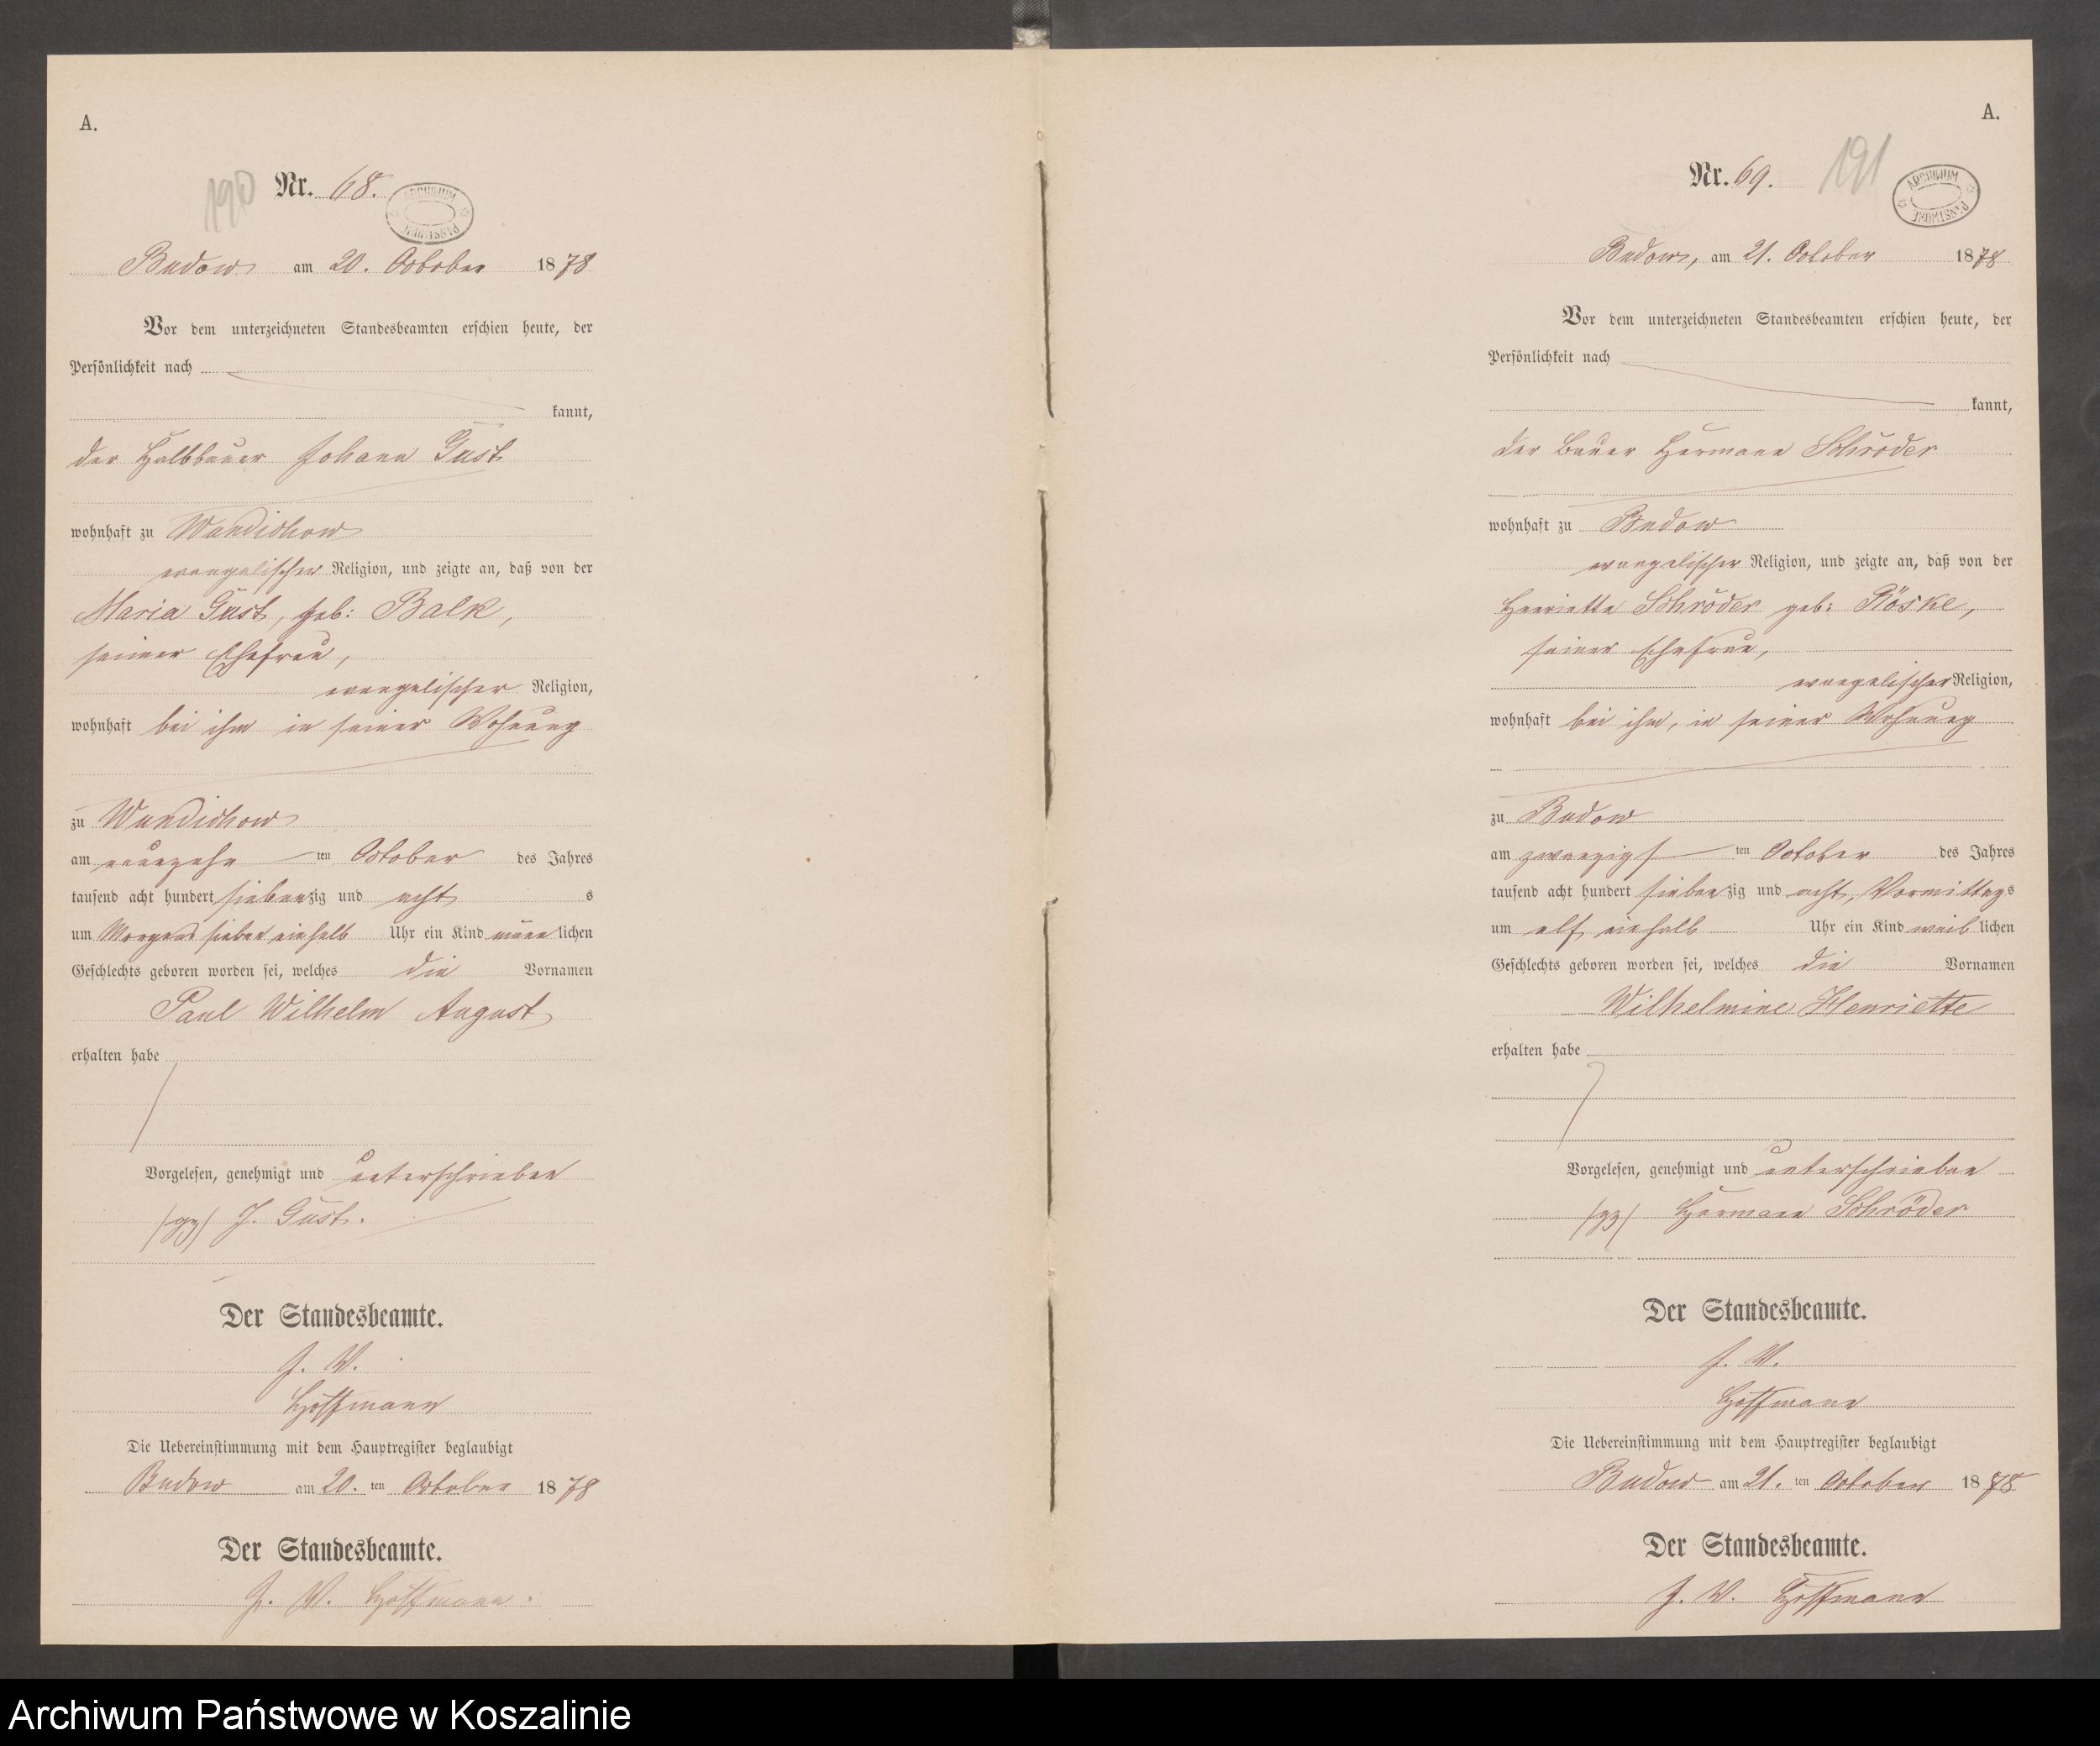 A.
190
Nr. 68.
ARCHIWUM PAŃSTWOWE
Budow am 20. October 1878
Vor dem unterzeichneten Standesbeamten erschien heute, der
Persönlichkeit nach
kannt,
der Halbbauer Johann Gust
wohnhaft zu Wundichow
evangelischer Religion, und zeigte an, daß von der
Maria Gust, geb: Balk,
seiner Ehefrau,
evangelischer Religion,
wohnhaft bei ihm in seiner Wohnung
zu Wundichow
am neunzehn ten October des Jahres
tausend acht hundert siebenzig und acht s
um Morgens sieben einhalb Uhr ein Kind männlichen
Geschlechts geboren worden sei, welches die Vornamen
Paul Wilhelm August
erhalten habe
Vorgelesen, genehmigt und unterschrieben
(gz) J. Gust.
Der Standesbeamte.
J. V.
Hoffmann
Die Uebereinstimmung mit dem Hauptregister beglaubigt
Budow am 20. ten October 1878
Der Standesbeamte.
J. V. Hoffmann.
A.
Nr. 69.
191
ARCHIWUM PAŃSTWOWE
Budow, am 21. October 1878
Vor dem unterzeichneten Standesbeamten erschien heute, der
Persönlichkeit nach
kannt,
der Bauer Hermann Schröder
wohnhaft zu Budow
evangelischer Religion, und zeigte an, daß von der
Henriette Schröder geb: Röske,
seiner Ehefrau,
evangelischer Religion,
wohnhaft bei ihm, in seiner Wohnung
zu Budow
am zwanzigs ten October des Jahres
tausend acht hundert siebenzig und acht, Vormittags
um elf einhalb Uhr ein Kind weiblichen
Geschlechts geboren worden sei, welches die Vornamen
Wilhelmine Henriette
erhalten habe
Vorgelesen, genehmigt und unterschrieben
(gz) Hermann Schröder
Der Standesbeamte.
J. V.
Hoffmann
Die Uebereinstimmung mit dem Hauptregister beglaubigt
Budow am 21. ten October 1878
Der Standesbeamte.
J. V. Hoffmann
Archiwum Państwowe w Koszalinie